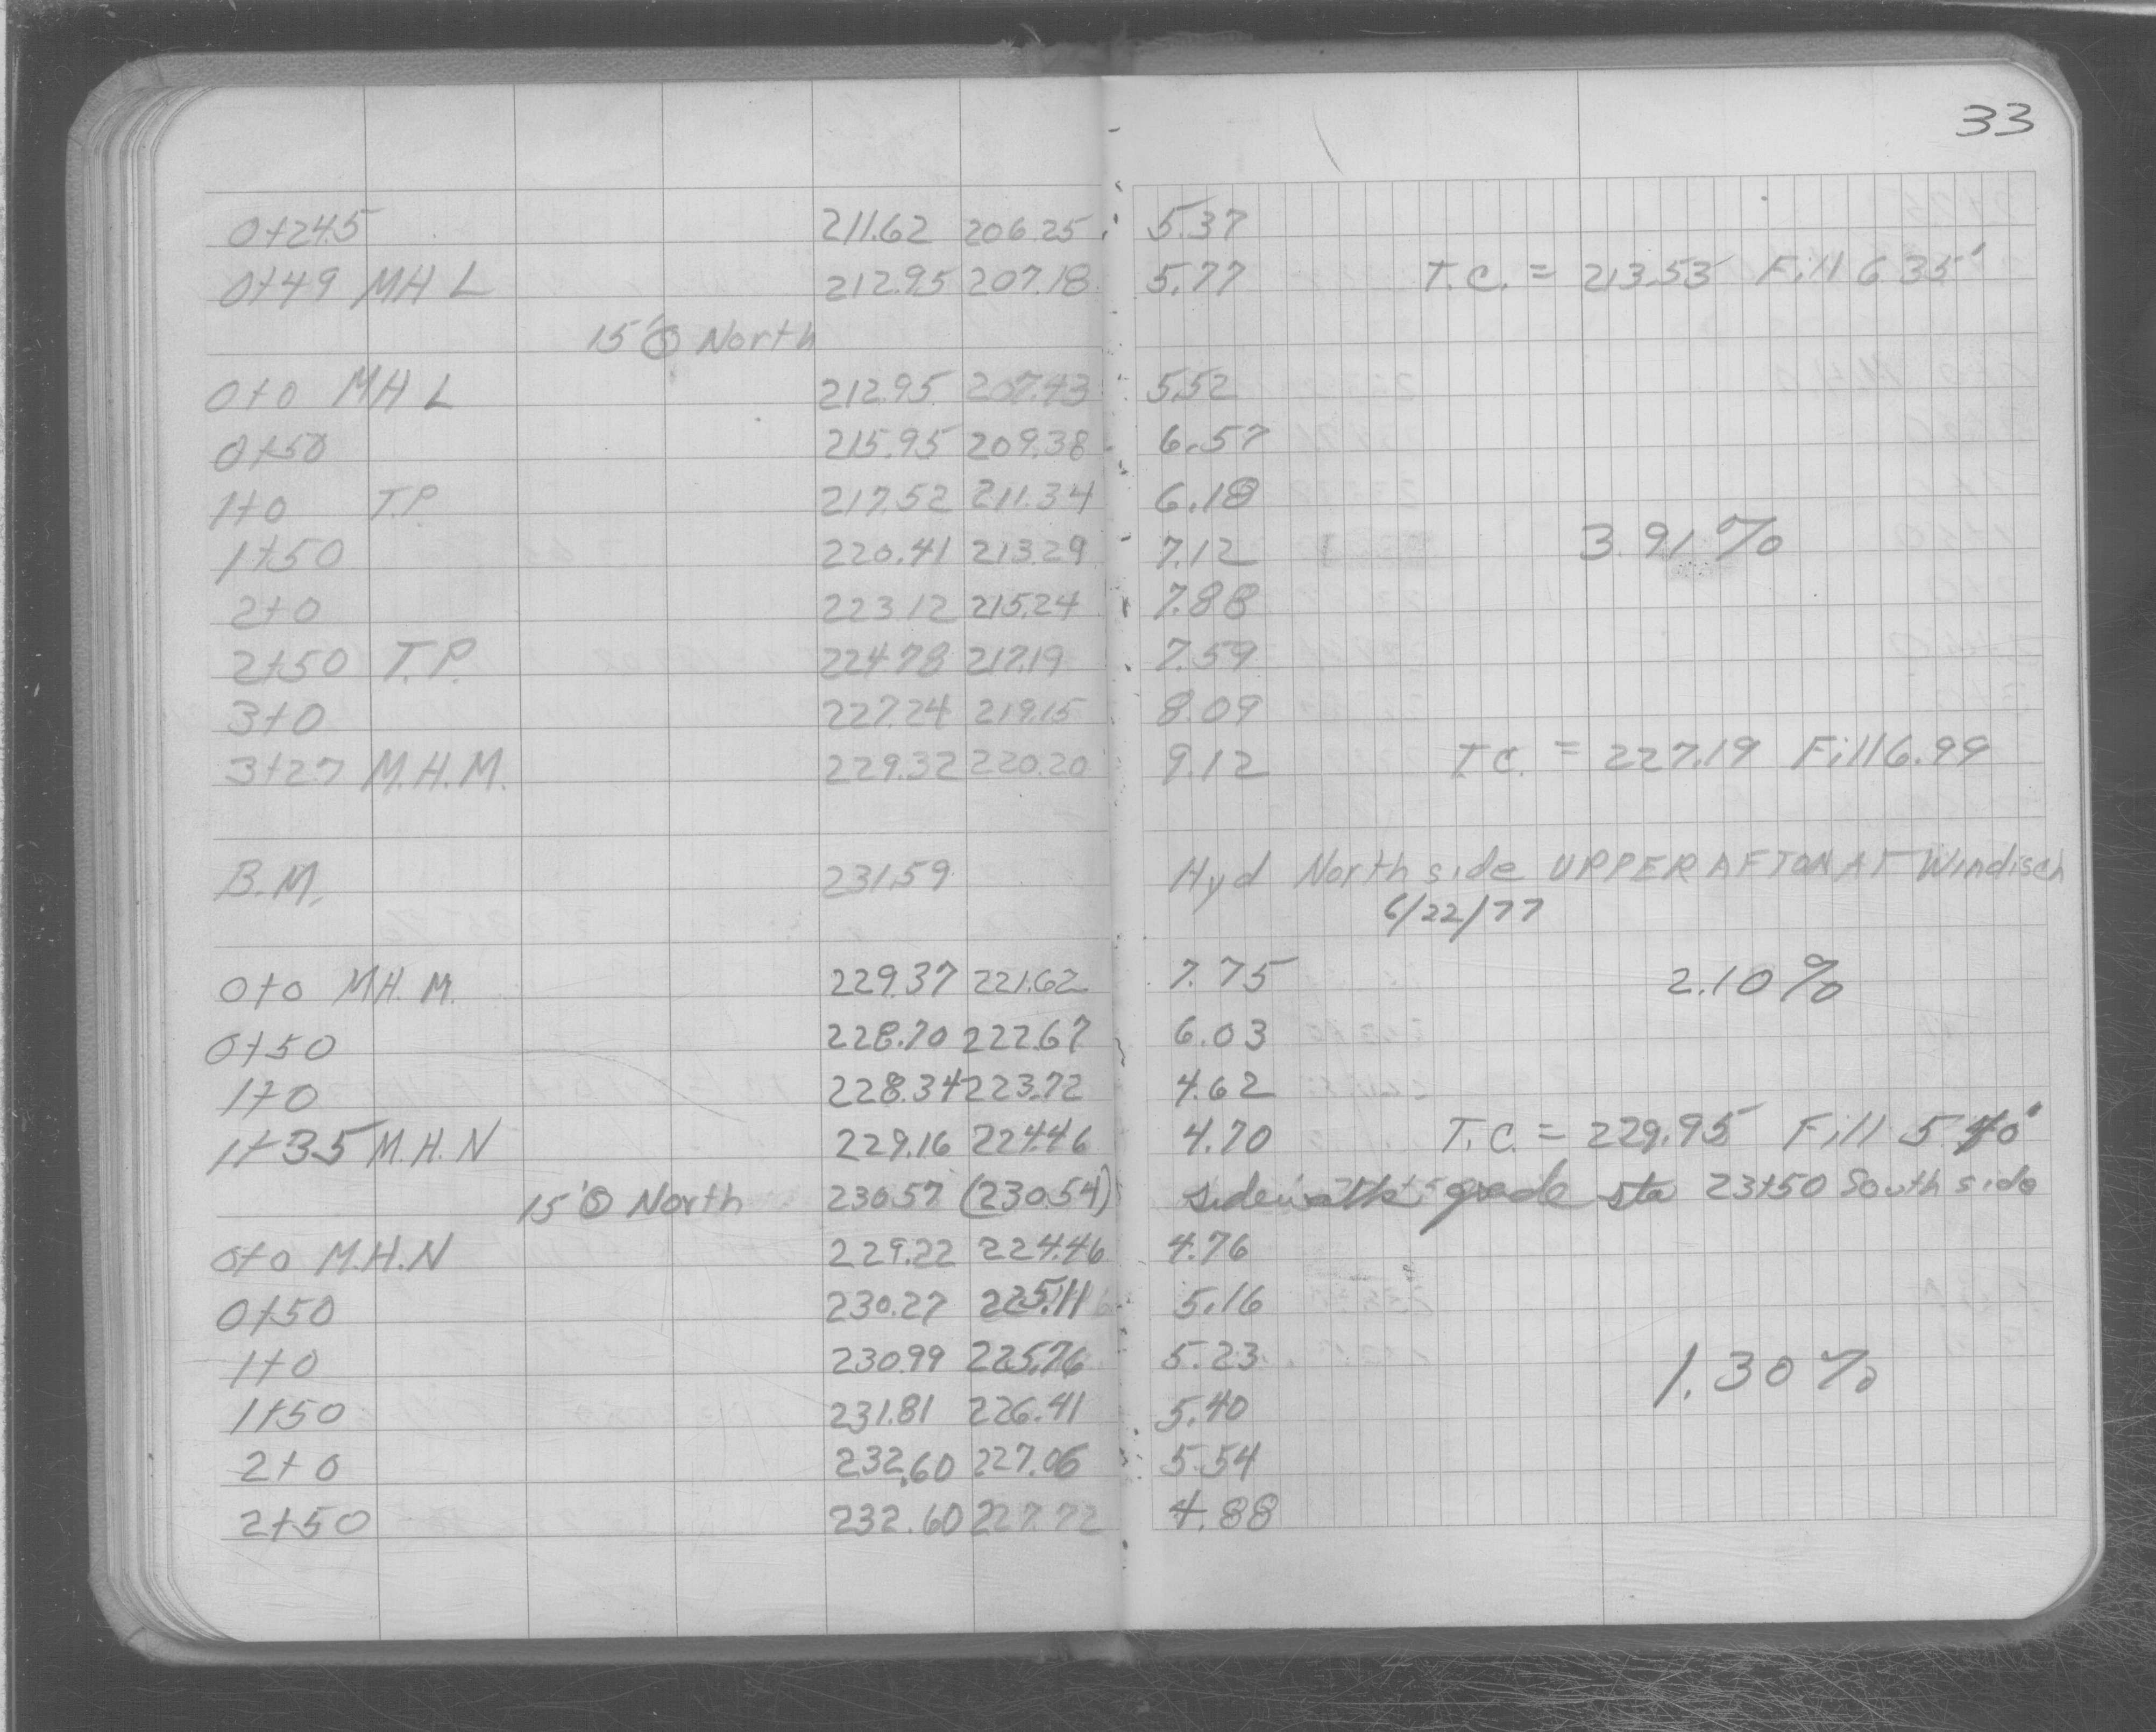 33
0+24.5 211.62 206.25 5.37
0+49 MH L 212.95 207.18 5.77 T.C. = 213.53 Fill 6.35'
15' North
0+0 MH L 212.95 207.43 5.52
0+50 215.95 209.38 6.57
1+0 T.P. 217.52 211.34 6.18
1+50 220.41 213.29 7.12 3.91%
2+0 223.12 215.24 7.88
2+50 T.P. 224.78 217.19 7.59
3+0 227.24 219.15 8.09
3+27 M.H.M. 229.32 220.20 9.12 T.C. = 227.19 Fill 6.99
B.M. 231.59 Hyd North side UPPER AFTON AT Windisch
6/22/77
0+0 MH. M. 229.37 221.62 7.75 2.10%
0+50 228.70 222.67 6.03
1+0 228.34 223.72 4.62
1+35 M.H.N 229.16 224.46 4.70 T.C. = 229.95 Fill 5.
15' North 230.57 (230.54) sidewalk grade sta 23+50 South side
0+0 M.H.N 229.22 224.46 4.76
0+50 230.27 225.11 5.16
1+0 230.99 225.76 5.23 1.30%
1+50 231.81 226.41 5.40
2+0 232.60 227.06 5.54
2+50 232.60 227.72 4.88